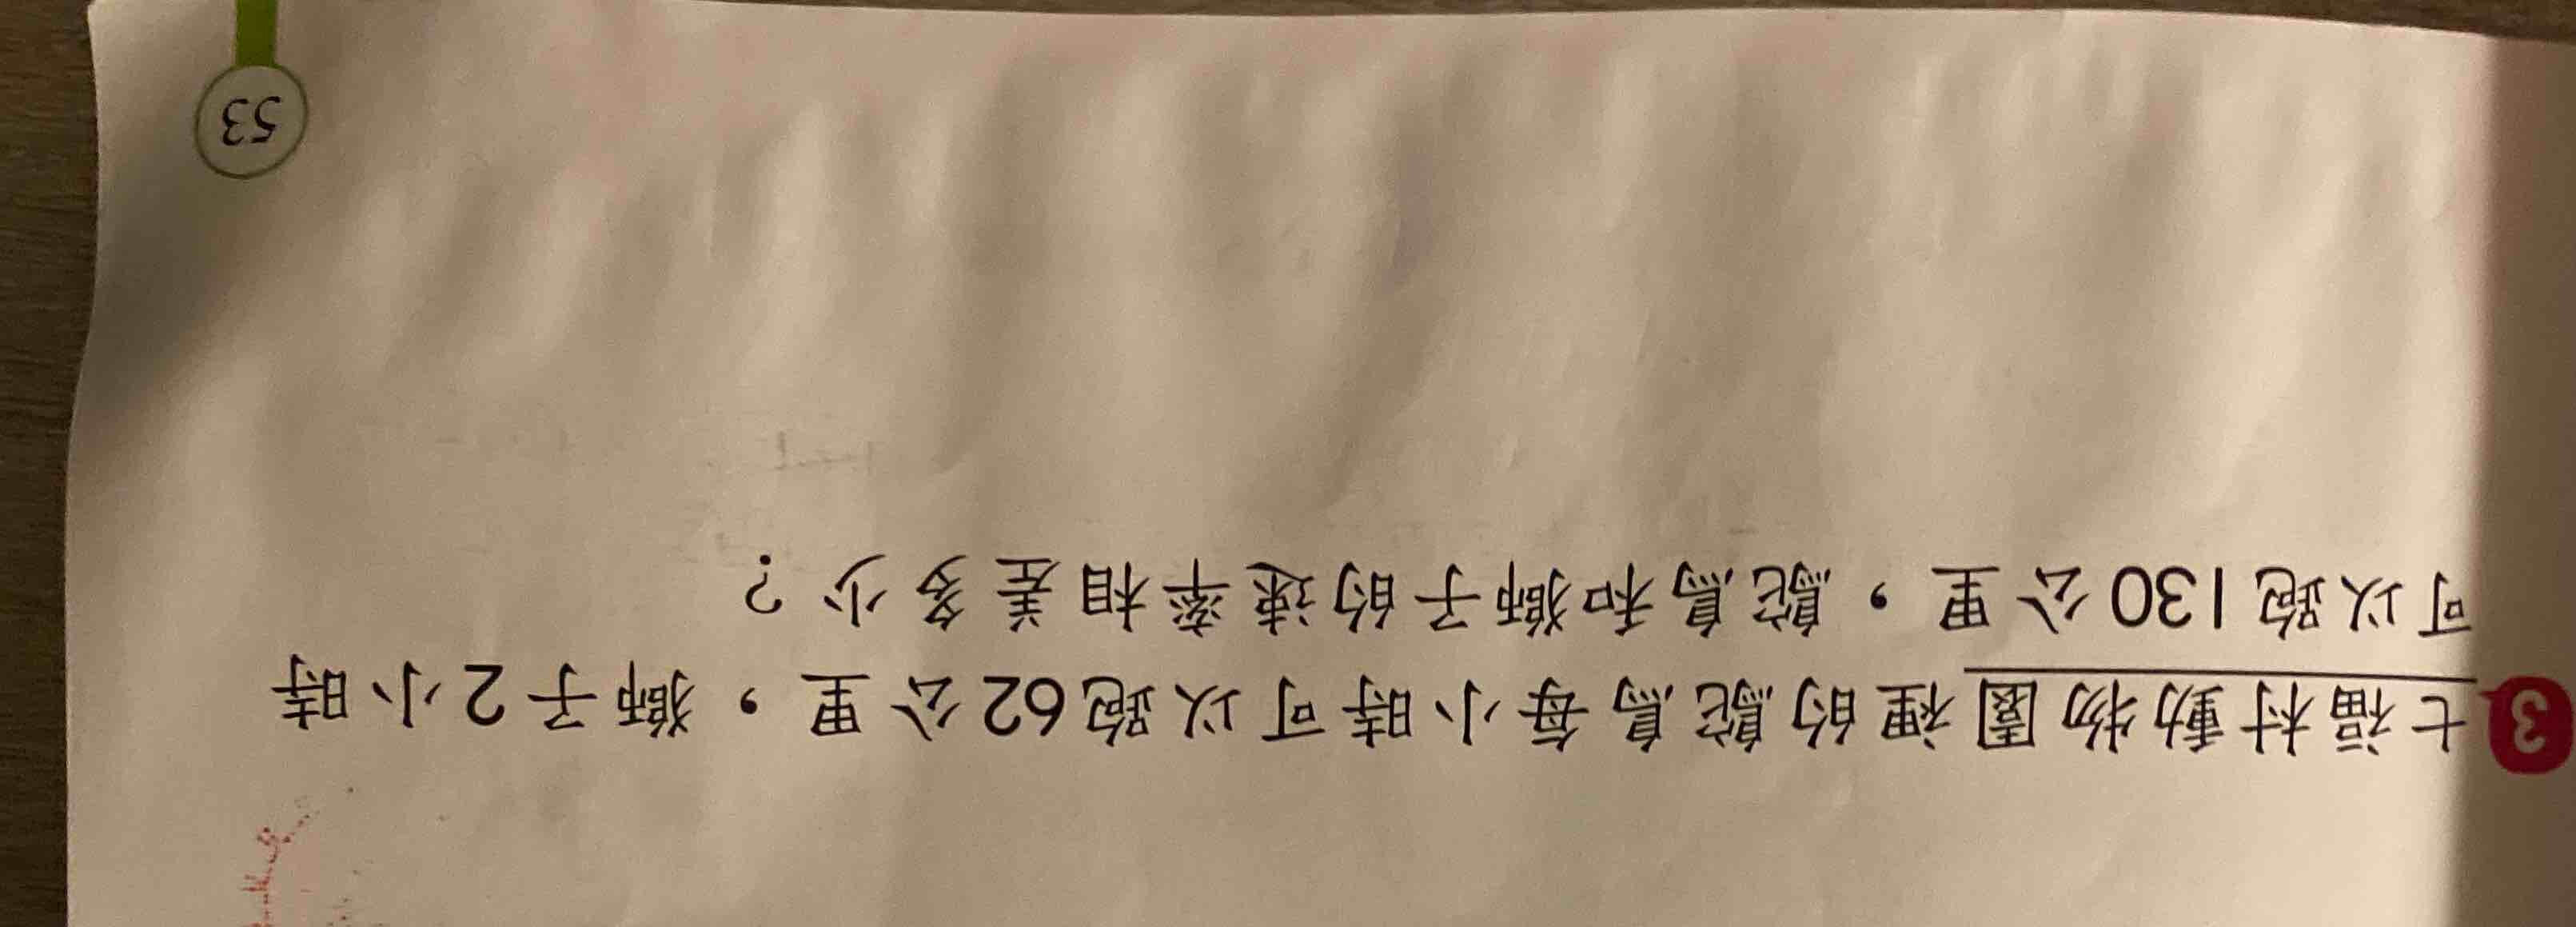 3 七福村動物園裡的鴕鳥每小時可以跑62公里，獅子2小時
可以跑130公里，鴕鳥和獅子的速率相差多少？
53